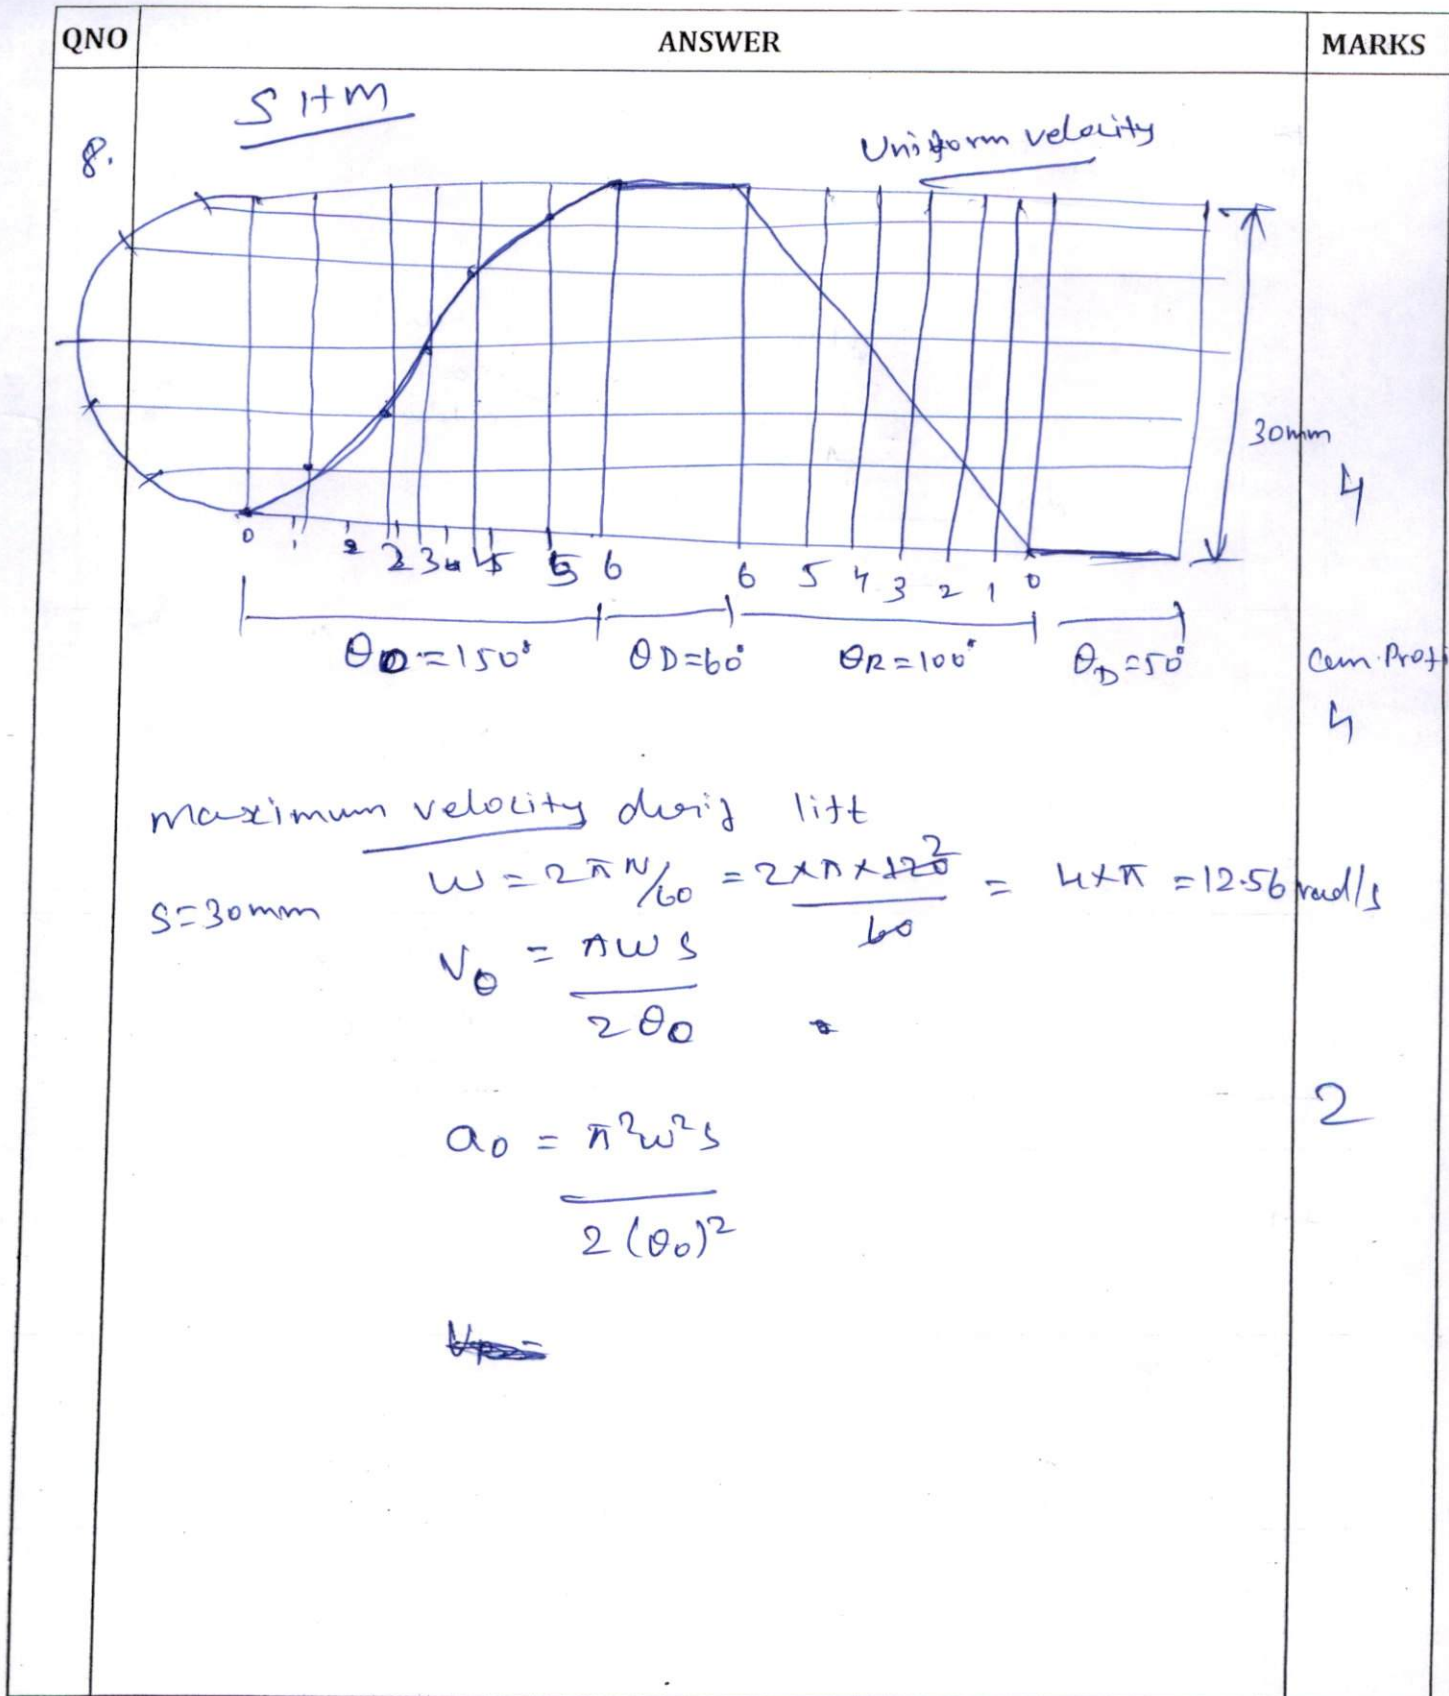 QNO ANSWER MARKS
SHM
8.
Uniform velocity
30mm
4
0 1 2 2 3 4 4 5 5 6 6 5 4 3 2 1 0
θO = 150° θD = 60° θR = 100° θD = 50°
Cam. Profi
4
maximum velocity durig lift
S = 30mm
ω = 2πN/60 = 2×π×120/60 = 4×π = 12.56 rad/s
Vθ = πωS / 2θO
aO = π²ω²S / 2(θO)²
2